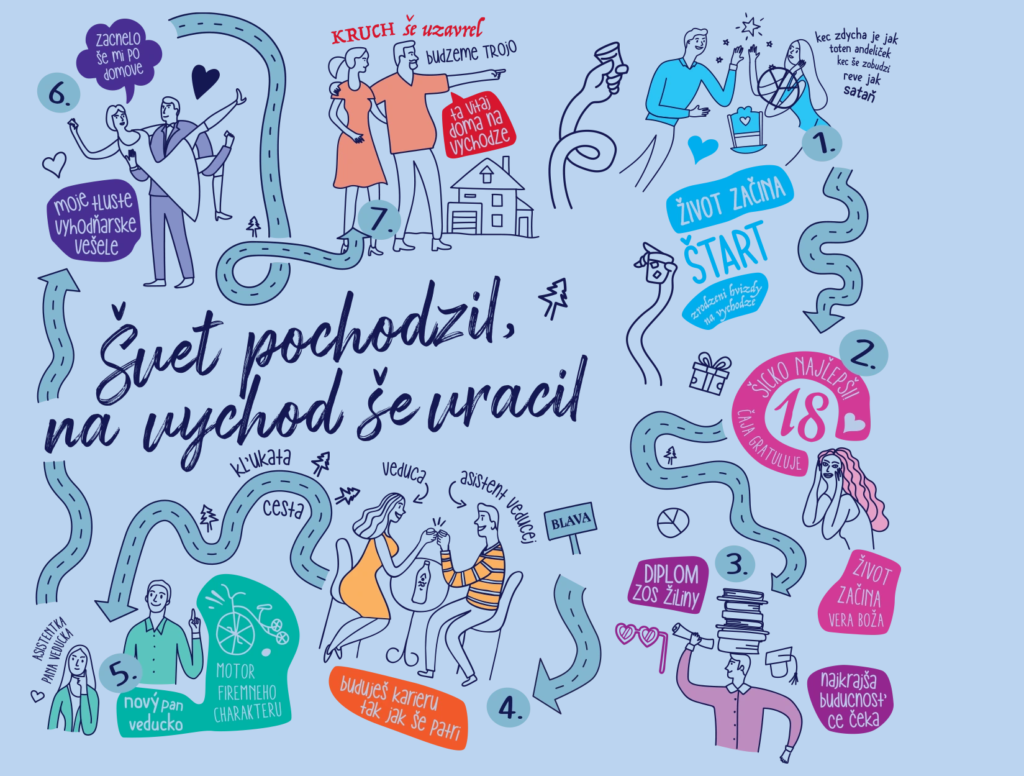 Švet pochodzil,
na vychod še vracil
kec zdycha je jak
toten andeliček
kec še zobudzi
reve jak
sataň
1.
ŽIVOT ZAČINA
ŠTART
zrodzeni hvizdy
na vychodze
2.
ŠICKO NAJLEPŠII
18
ČAJA GRATULUJE
ŽIVOT
ZAČINA
VERA BOŽA
3.
DIPLOM
ZOS ŽILINY
najkrajša
buducnosť
ce čeka
BLAVA
4.
veduca
asistent veducej
buduješ karieru
tak jak še patri
kľukata
cesta
5.
ASISTENTKA
PANA VEDUCKA
nový pan
veducko
MOTOR
FIREMNEHO
CHARAKTERU
6.
ZAČNELO
ŠE MI PO
DOMOVE
moje tluste
vyhodňarske
vešele
7.
KRUCH še uzavrel
budzeme trojo
ta vitaj
doma na
vychodze